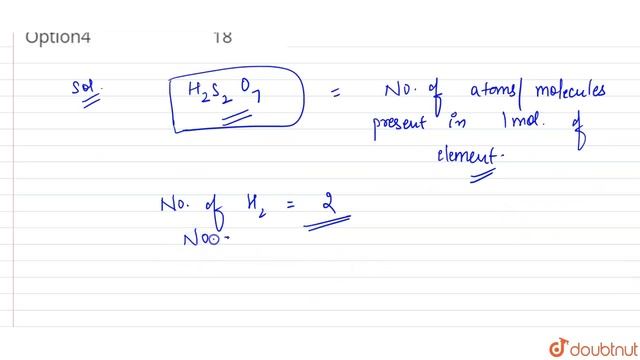 Option4 18
Sol. H₂S₂O₇ = NO. of atoms/ molecules
present in 1mol. of
element.
No. of H₂ = 2
NOO.
doubtnut